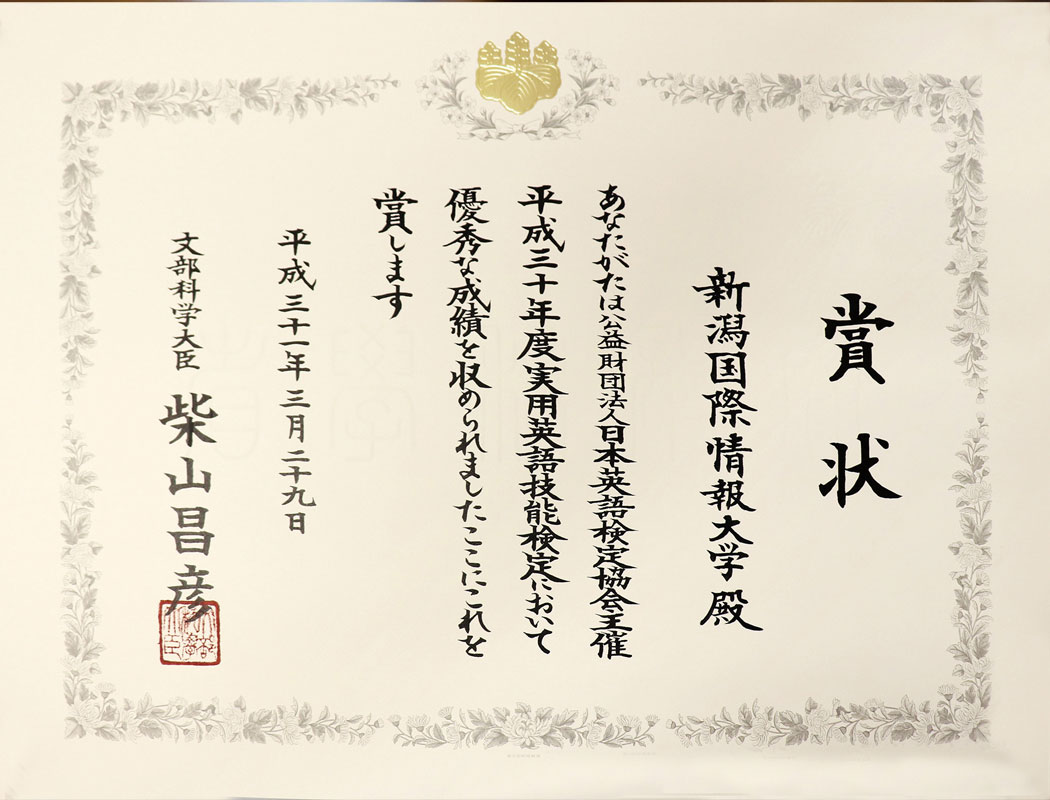 賞状
新潟国際情報大学殿
あなたがたは公益財団法人日本英語検定協会主催
平成三十年度実用英語技能検定において
優秀な成績を収められましたここにこれを
賞します
平成三十一年三月二十九日
文部科学大臣 柴山昌彦